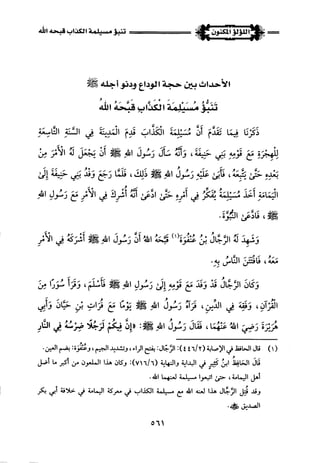 اللؤلؤ المكنون
تنبؤ مسيلمة الكذاب قبحه الله
الأحداث بين حجة الوداع ودنو أجله ﷺ
تَنَبُّؤُ مُسَيْلِمَةَ الْكَذَّابِ قَبَّحَهُ اللهُ
ذَكَرْنَا فِيمَا تَقَدَّمَ أَنَّ مُسَيْلِمَةَ الْكَذَّابَ قَدِمَ الْمَدِينَةَ فِي السَّنَةِ التَّاسِعَةِ
لِلْهِجْرَةِ مَعَ قَوْمِهِ بَنِي حَنِيفَةَ، وَأَنَّهُ سَأَلَ رَسُولَ اللهِ ﷺ أَنْ يَجْعَلَ لَهُ الْأَمْرَ مِنْ
بَعْدِهِ حَتَّى يَتَّبِعَهُ، فَأَبَى عَلَيْهِ رَسُولُ اللهِ ﷺ ذَلِكَ، فَلَمَّا رَجَعَ وَفْدُ بَنِي حَنِيفَةَ إِلَى
الْيَمَامَةِ أَخَذَ مُسَيْلِمَةُ يُفَكِّرُ فِي أَمْرِهِ حَتَّى ادَّعَى أَنَّهُ أُشْرِكَ فِي الْأَمْرِ مَعَ رَسُولِ اللهِ
ﷺ، فَادَّعَى النُّبُوَّةَ.
وَشَهِدَ لَهُ الرَّجَّالُ بْنُ عُنْفُوَةَ(١) قَبَّحَهُ اللهُ أَنَّ رَسُولَ اللهِ ﷺ أَشْرَكَهُ فِي الْأَمْرِ
مَعَهُ، فَافْتَتَنَ النَّاسُ بِهِ.
وَكَانَ الرَّجَّالُ قَدْ وَفَدَ مَعَ قَوْمِهِ إِلَى رَسُولِ اللهِ ﷺ فَأَسْلَمَ، وَقَرَأَ سُوَرًا مِنَ
الْقُرْآنِ، وَفَقِهَ فِي الدِّينِ، فَرَآهُ رَسُولُ اللهِ ﷺ يَوْمًا مَعَ فُرَاتِ بْنِ حَيَّانَ وَأَبِي
هُرَيْرَةَ رَضِيَ اللهُ عَنْهُمَا، فَقَالَ رَسُولُ اللهِ ﷺ: «إِنَّ فِيكُمْ لَرَجُلًا ضِرْسُهُ فِي النَّارِ
(١) قال الحافظ في الإصابة (٤٤٦/٢): الرَّجَّال: بفتح الراء، وتشديد الجيم، وعُنْفُوَة: بضم العين.
قال الحافظ ابنُ كَثِيرٍ في البداية والنهاية (٧١٦/٦): وكان هذا الملعون من أكبر ما أضل
أهل اليمامة، حتى اتبعوا مسيلمة لعنهما الله.
وقد قُتِل الرَّجَّال هذا لعنه الله مع مسيلمة الكذاب في معركة اليمامة في خلافة أبي بكر
الصديق ﵁.
٥٦١